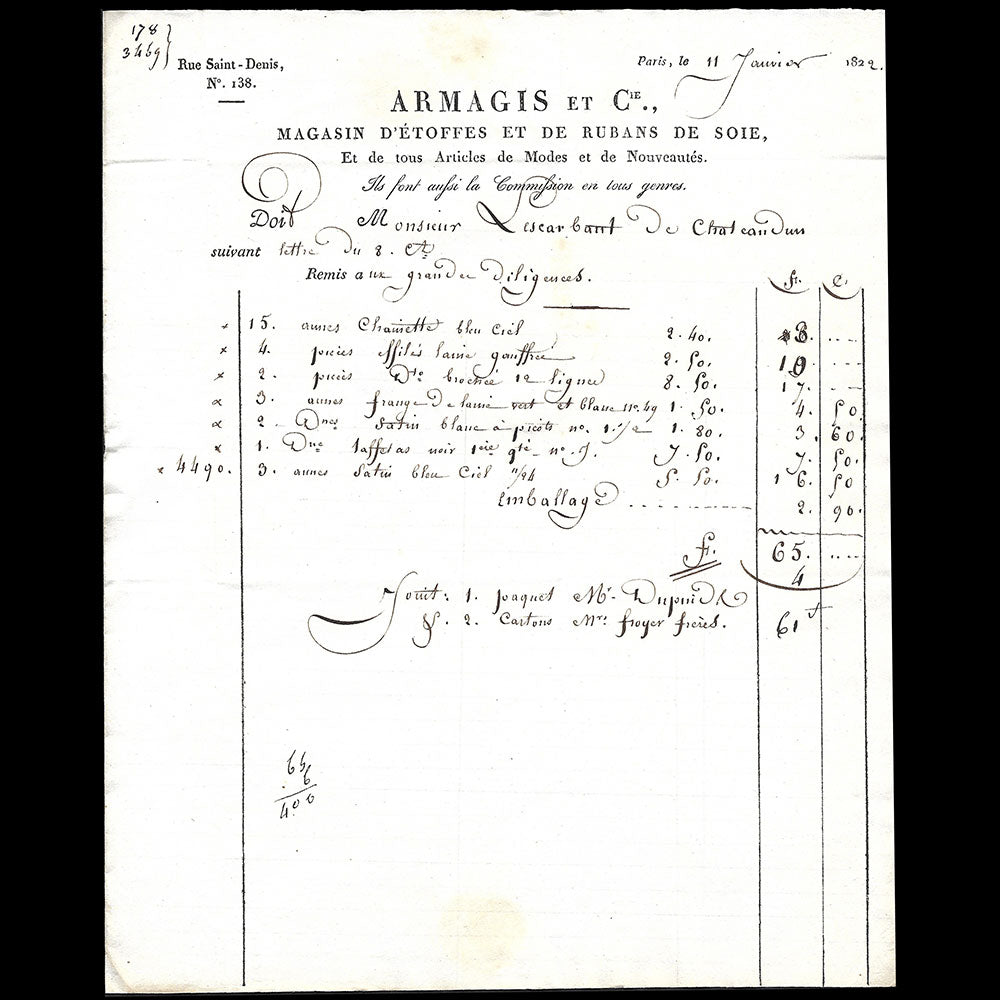 178
3469
Rue Saint-Denis,
N°. 138.
Paris, le 11 Janvier 1822.
ARMAGIS ET C.IE,
MAGASIN D'ÉTOFFES ET DE RUBANS DE SOIE,
Et de tous Articles de Modes et de Nouveautés.
Ils font aussi la Commission en tous genres.
Doit Monsieur Lescarbaut De Chateaudun
suivant lettre Du 8. Ct.
Remis aux grandes Diligences.
fr. C.
x 15. aunes bleu Ciel 2. 40. 3. ....
x 4. pièces effilés laine gauffrée 2. 50. 10. ....
x 2. pièces Dto brochée 12 lignes 8. 50. 17. ....
x 3. aunes frange De laine vert et blanc no. 49 1. 50. 4. 50.
x 2. Dnes Satin blanc à picots no. 1.1/2 1. 80. 3. 60.
x 1. Dne taffetas noir 1ere qté no. 9. 7. 50. 7. 50.
x 4490. 3. aunes Satin bleu Ciel 11/24 5. 50. 16. 50
Emballage 2. 90.
fr. 65. ....
4
61
Joint: 1. paquet Mr.
&. 2. Cartons Mrs. froyer frères.
65
6
400